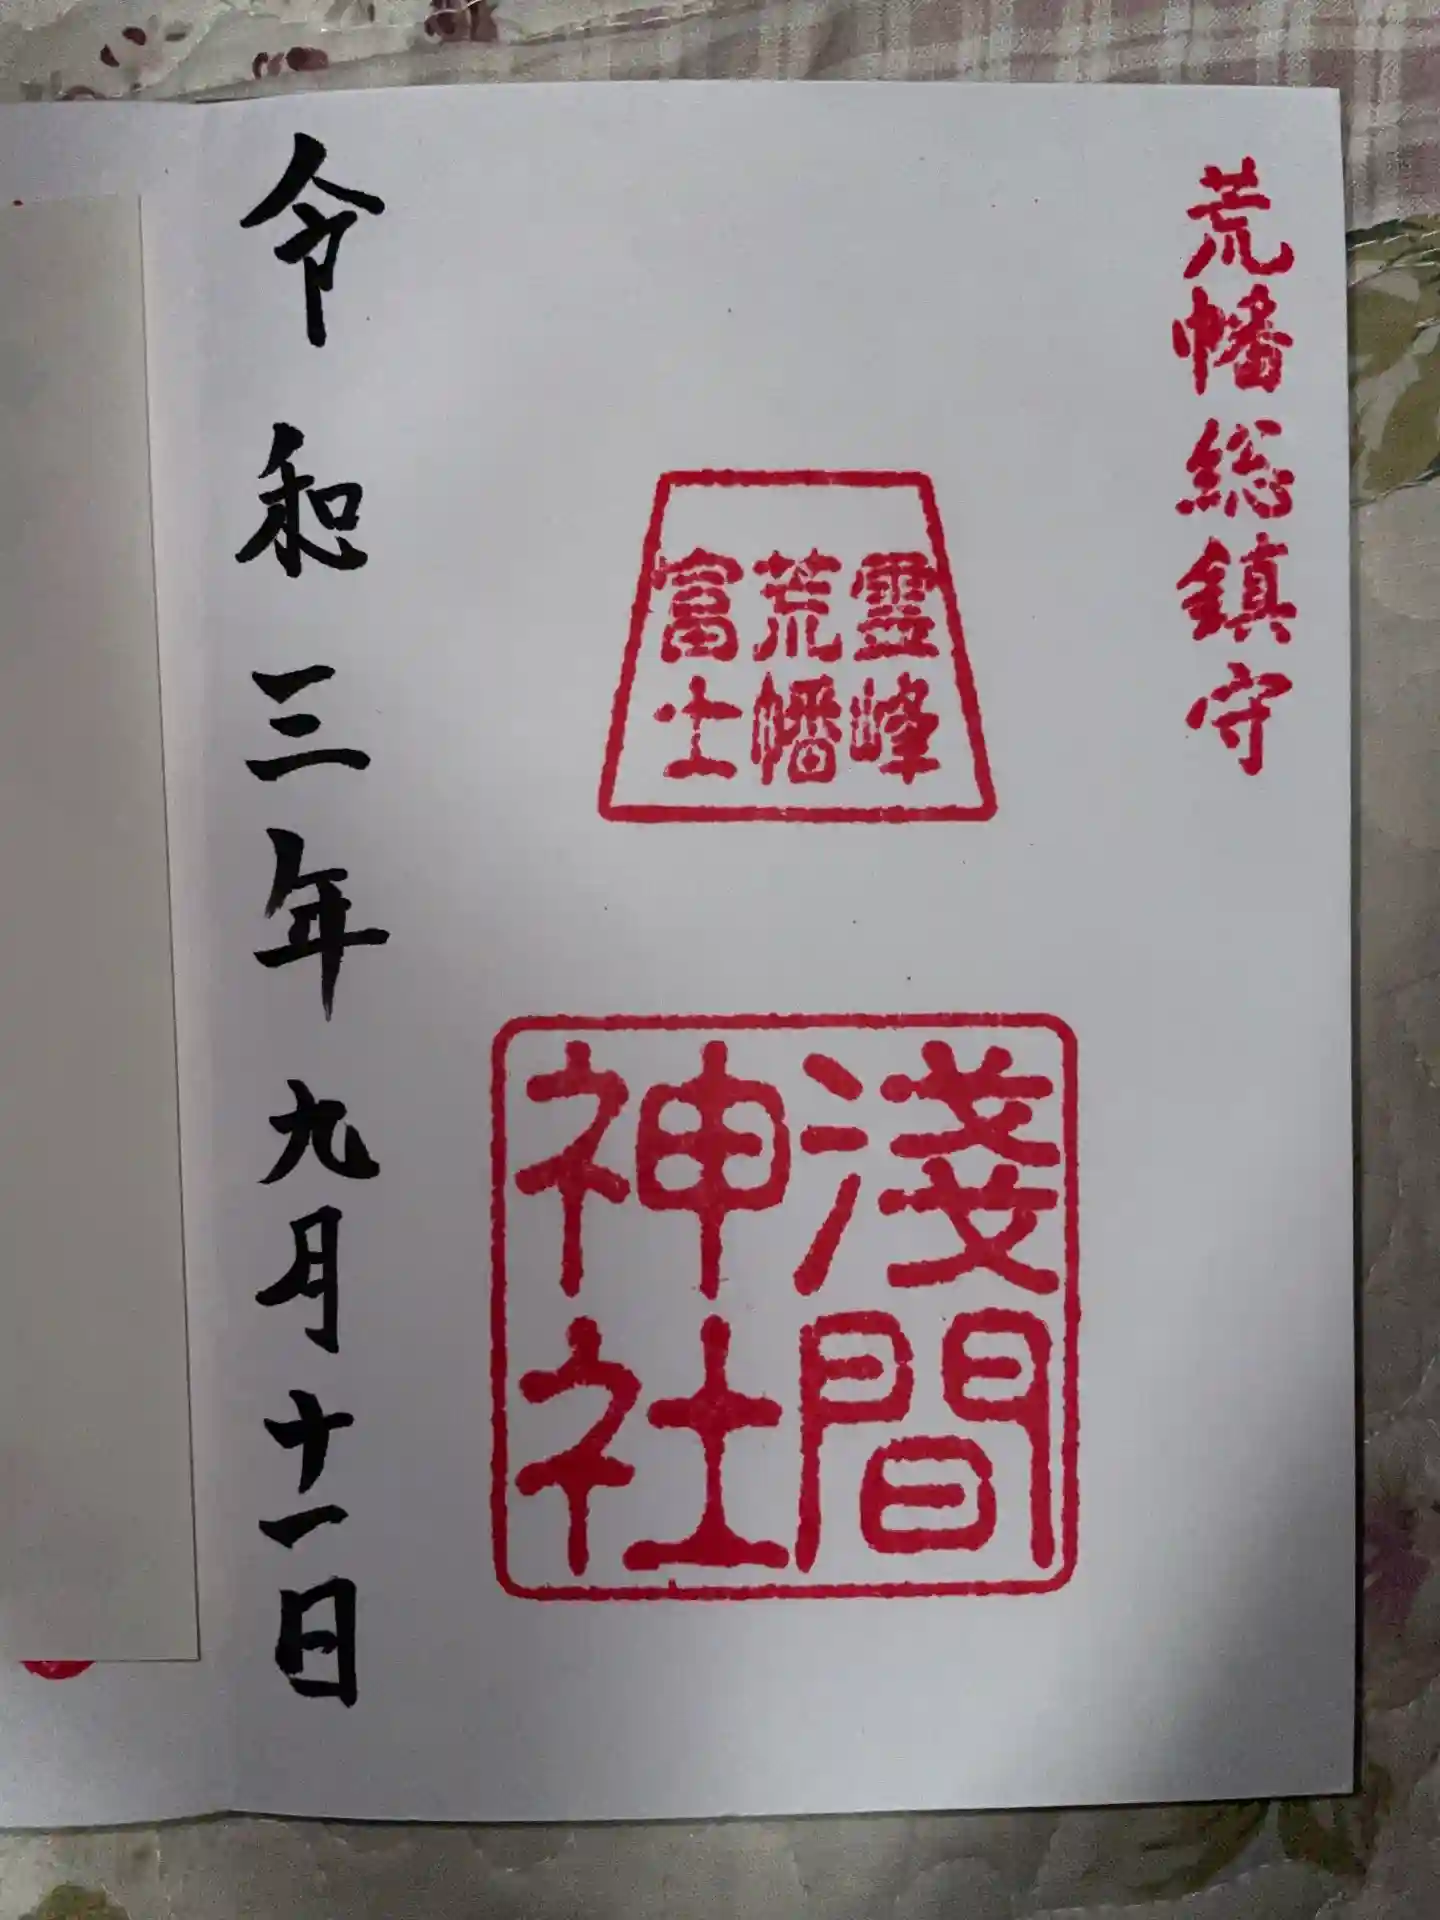 荒幡総鎮守
霊峰
荒幡
富士
淺間
神社
令和三年九月十一日